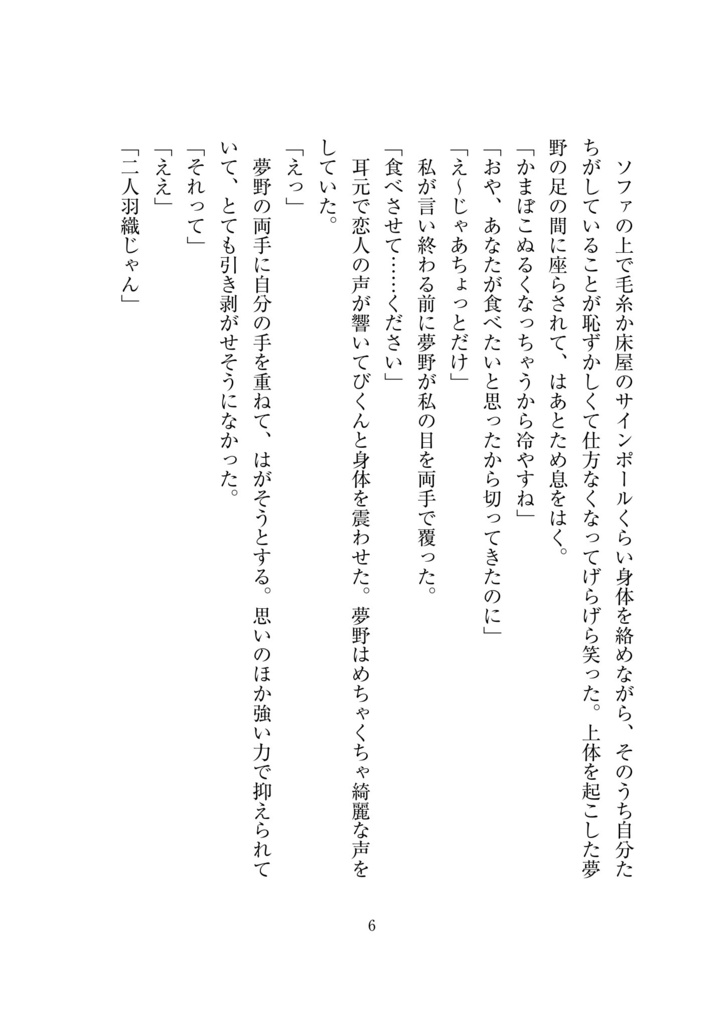 ソファの上で毛糸か床屋のサインポールくらい身体を絡めながら、そのうち自分た
ちがしていることが恥ずかしくて仕方なくなってげらげら笑った。上体を起こした夢
野の足の間に座らされて、はあとため息をはく。
「かまぼこぬるくなっちゃうから冷やすね」
「おや、あなたが食べたいと思ったから切ってきたのに」
「え〜じゃあちょっとだけ」
　私が言い終わる前に夢野が私の目を両手で覆った。
「食べさせて……ください」
　耳元で恋人の声が響いてびくんと身体を震わせた。夢野はめちゃくちゃ綺麗な声を
していた。
「えっ」
　夢野の両手に自分の手を重ねて、はがそうとする。思いのほか強い力で抑えられて
いて、とても引き剥がせそうになかった。
「それって」
「ええ」
「二人羽織じゃん」
6